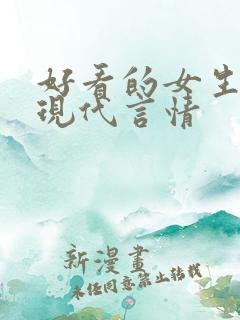 好看的女生
現代言情
新漫畫
未經同意禁止轉載